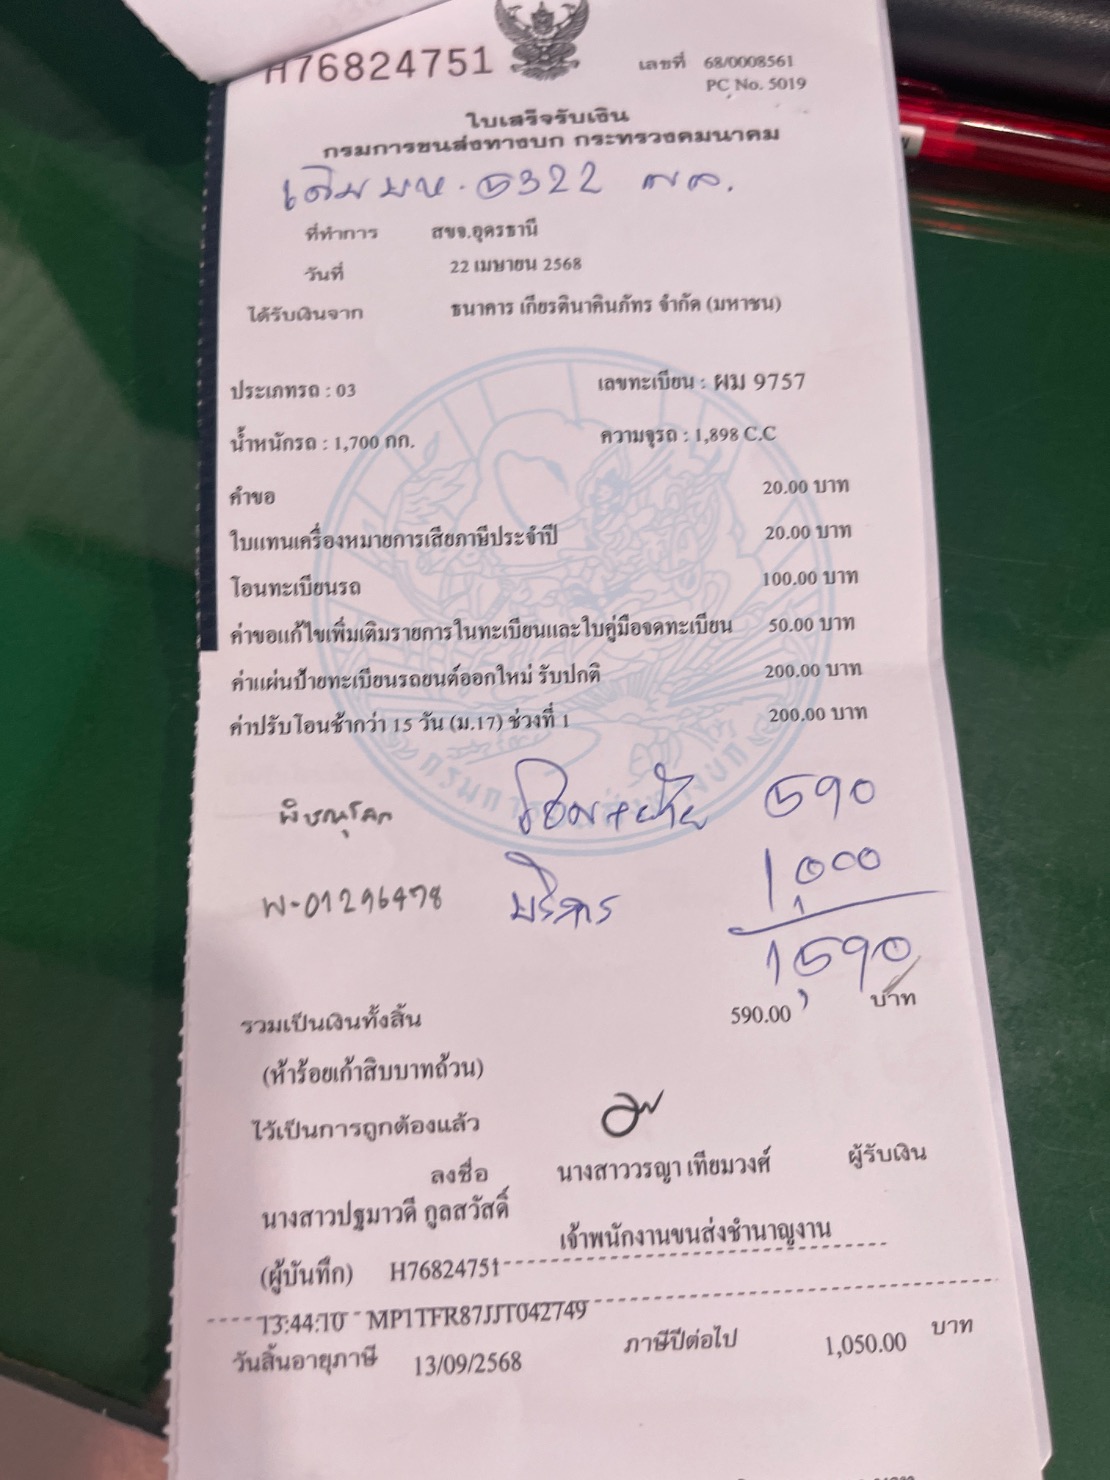 H76824751
เลขที่ 68/0008561
PC No. 5019
ใบเสร็จรับเงิน
กรมการขนส่งทางบก กระทรวงคมนาคม
เดิม บห. 5322 พล.
ที่ทำการ สขจ.อุดรธานี
วันที่ 22 เมษายน 2568
ได้รับเงินจาก ธนาคาร เกียรตินาคินภัทร จำกัด (มหาชน)
ประเภทรถ : 03 เลขทะเบียน : ผม 9757
น้ำหนักรถ : 1,700 กก. ความจุรถ : 1,898 C.C
คำขอ 20.00 บาท
ใบแทนเครื่องหมายการเสียภาษีประจำปี 20.00 บาท
โอนทะเบียนรถ 100.00 บาท
ค่าขอแก้ไขเพิ่มเติมรายการในทะเบียนและใบคู่มือจดทะเบียน 50.00 บาท
ค่าแผ่นป้ายทะเบียนรถยนต์ออกใหม่ รับปกติ 200.00 บาท
ค่าปรับโอนช้ากว่า 15 วัน (ม.17) ช่วงที่ 1 200.00 บาท
พิษณุโลก โอน+ย้าย 590
บริการ 1,000
พ-01296478
1,590
รวมเป็นเงินทั้งสิ้น 590.00 บาท
(ห้าร้อยเก้าสิบบาทถ้วน)
ไว้เป็นการถูกต้องแล้ว
ลงชื่อ นางสาววรญา เทียมวงศ์ ผู้รับเงิน
นางสาวปฐมาวดี กูลสวัสดิ์ เจ้าพนักงานขนส่งชำนาญงาน
(ผู้บันทึก) H76824751
13:44:10 MP1TFR87JJT042749
วันสิ้นอายุภาษี 13/09/2568 ภาษีปีต่อไป 1,050.00 บาท